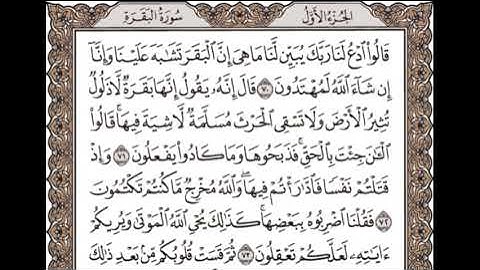 الجزء الأول سورة البقرة
قَالُوا۟ ٱدْعُ لَنَا رَبَّكَ يُبَيِّن لَّنَا مَا هِىَ إِنَّ ٱلْبَقَرَ تَشَٰبَهَ عَلَيْنَا وَإِنَّآ
إِن شَآءَ ٱللَّهُ لَمُهْتَدُونَ ٧٠ قَالَ إِنَّهُۥ يَقُولُ إِنَّهَا بَقَرَةٌ لَّا ذَلُولٌ
تُثِيرُ ٱلْأَرْضَ وَلَا تَسْقِى ٱلْحَرْثَ مُسَلَّمَةٌ لَّا شِيَةَ فِيهَا ۚ قَالُوا۟
ٱلْـَٰٔنَ جِئْتَ بِٱلْحَقِّ ۚ فَذَبَحُوهَا وَمَا كَادُوا۟ يَفْعَلُونَ ٧١ وَإِذْ
قَتَلْتُمْ نَفْسًا فَٱدَّٰرَْٰٔتُمْ فِيهَا ۖ وَٱللَّهُ مُخْرِجٌ مَّا كُنتُمْ تَكْتُمُونَ
٧٢ فَقُلْنَا ٱضْرِبُوهُ بِبَعْضِهَا ۚ كَذَٰلِكَ يُحْىِ ٱللَّهُ ٱلْمَوْتَىٰ وَيُرِيكُمْ
ءَايَٰتِهِۦ لَعَلَّكُمْ تَعْقِلُونَ ٧٣ ثُمَّ قَسَتْ قُلُوبُكُم مِّنۢ بَعْدِ ذَٰلِكَ